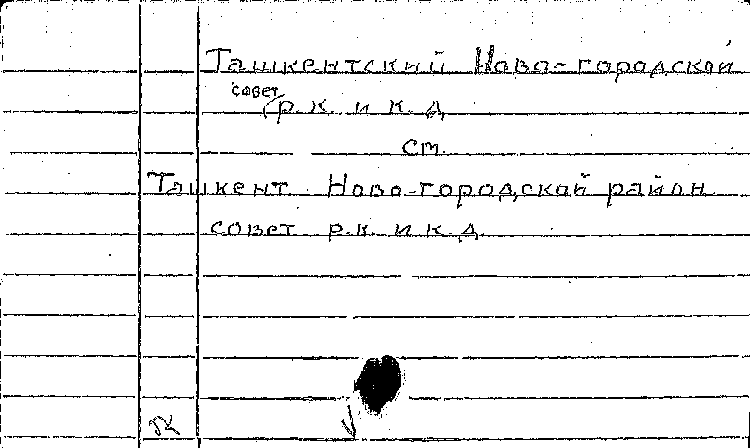 Ташкентский Ново-городской
совет
р. к. и к. д
ст.
Ташкент Ново-городской район
совет р.к. и к. д.